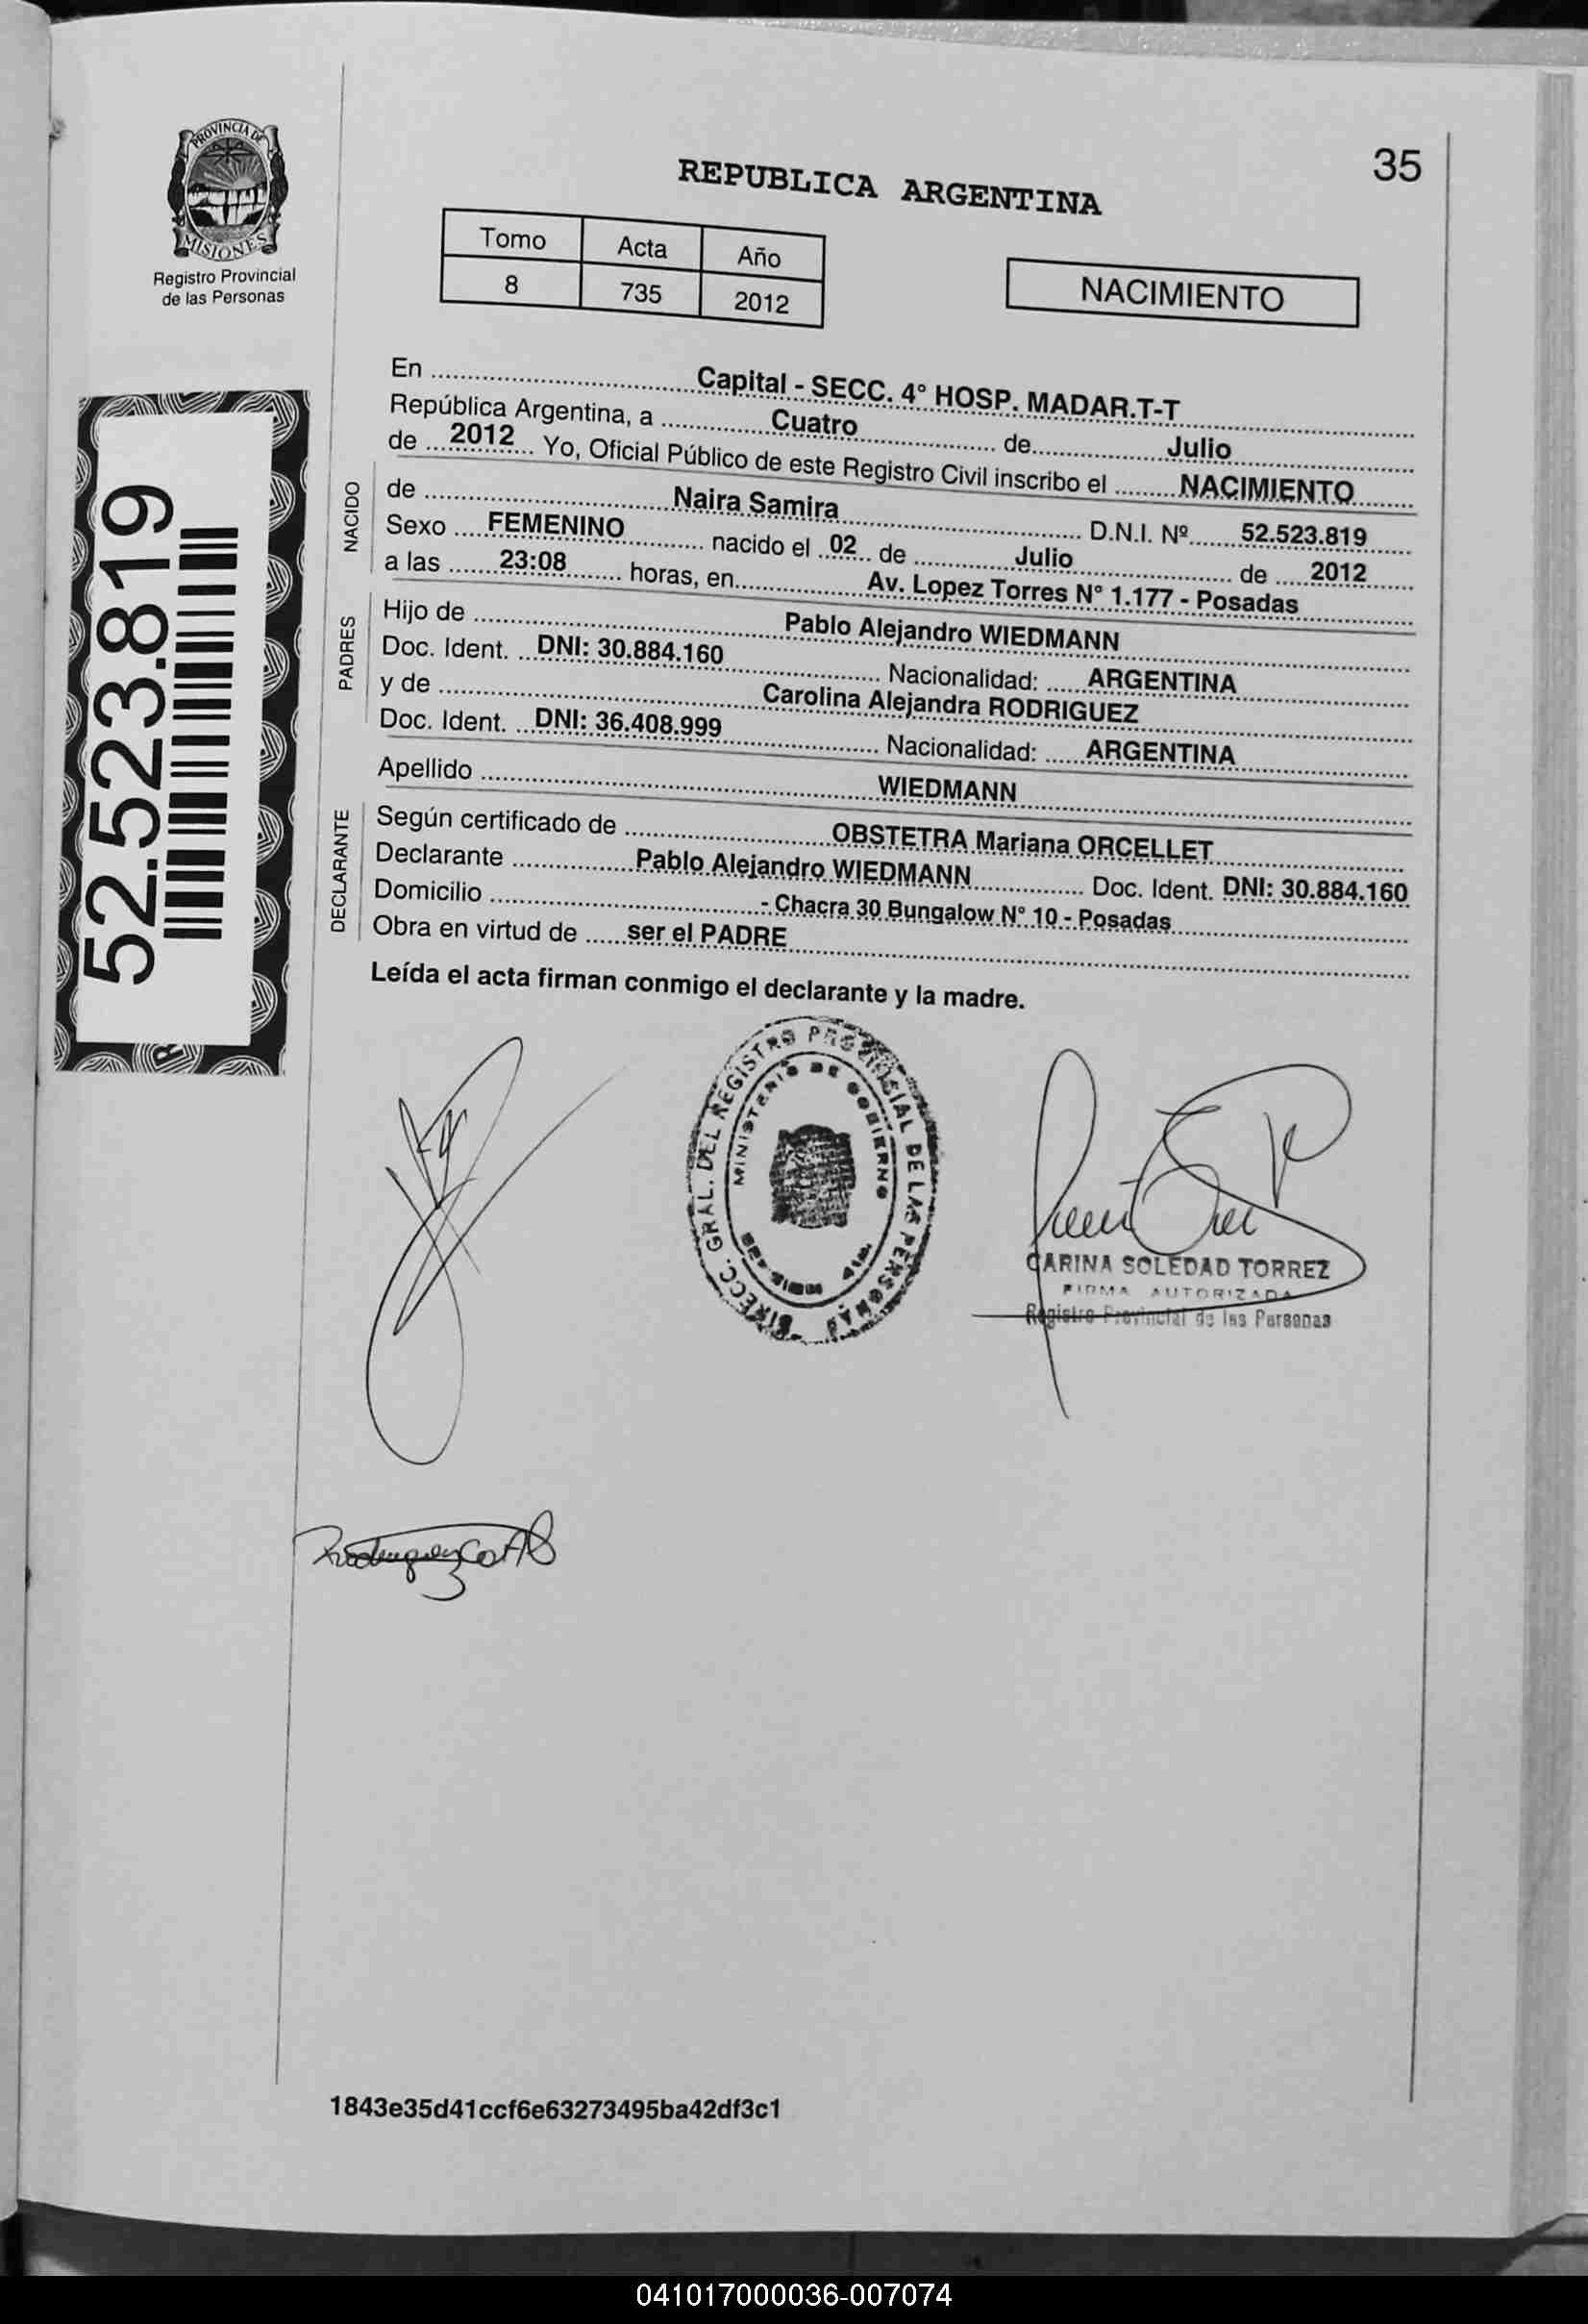 PROVINCIA DE
MISIONES
Registro Provincial
de las Personas
35
REPUBLICA ARGENTINA
Tomo Acta Año
8 735 2012
NACIMIENTO
52.523.819
En Capital - SECC. 4° HOSP. MADAR.T-T
República Argentina, a Cuatro de Julio
de 2012 Yo, Oficial Público de este Registro Civil inscribo el NACIMIENTO
NACIDO
de Naira Samira D.N.I. Nº 52.523.819
Sexo FEMENINO nacido el 02 de Julio de 2012
a las 23:08 horas, en Av. Lopez Torres N° 1.177 - Posadas
PADRES
Hijo de Pablo Alejandro WIEDMANN
Doc. Ident. DNI: 30.884.160 Nacionalidad: ARGENTINA
y de Carolina Alejandra RODRIGUEZ
Doc. Ident. DNI: 36.408.999 Nacionalidad: ARGENTINA
Apellido WIEDMANN
DECLARANTE
Según certificado de OBSTETRA Mariana ORCELLET
Declarante Pablo Alejandro WIEDMANN Doc. Ident. DNI: 30.884.160
Domicilio - Chacra 30 Bungalow N° 10 - Posadas
Obra en virtud de ser el PADRE
Leída el acta firman conmigo el declarante y la madre.
DIRECC. GRAL. DEL REGISTRO PROVINCIAL DE LAS PERSONAS
MINISTERIO DE GOBIERNO
CARINA SOLEDAD TORREZ
FIRMA AUTORIZADA
Registro Provincial de las Personas
1843e35d41ccf6e63273495ba42df3c1
041017000036-007074